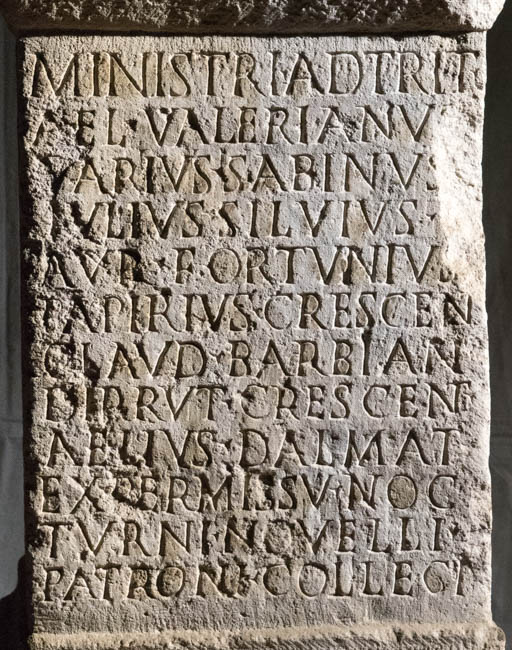 MINISTRI·AD·TRIT
AEL·VALERIANV
VARIVS·SABINVS
IVLIVS·SILVIVS
AVR·FORTVNIVS
PAPIRIVS·CRESCEN
CLAVD·BARBIAN
DIRRVT·CRESCEN
AELIVS·DALMAT
EX·PERMISSV·NOC
TVRNI·NOVELLI
PATRON·COLLEGI